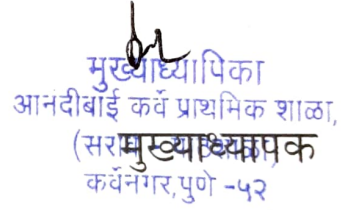 मुख्याध्यापिका
आनदीबाई कर्वे प्राथमिक शाळा,
मुख्याध्यापक
कर्वेनगर,पुणे -५२